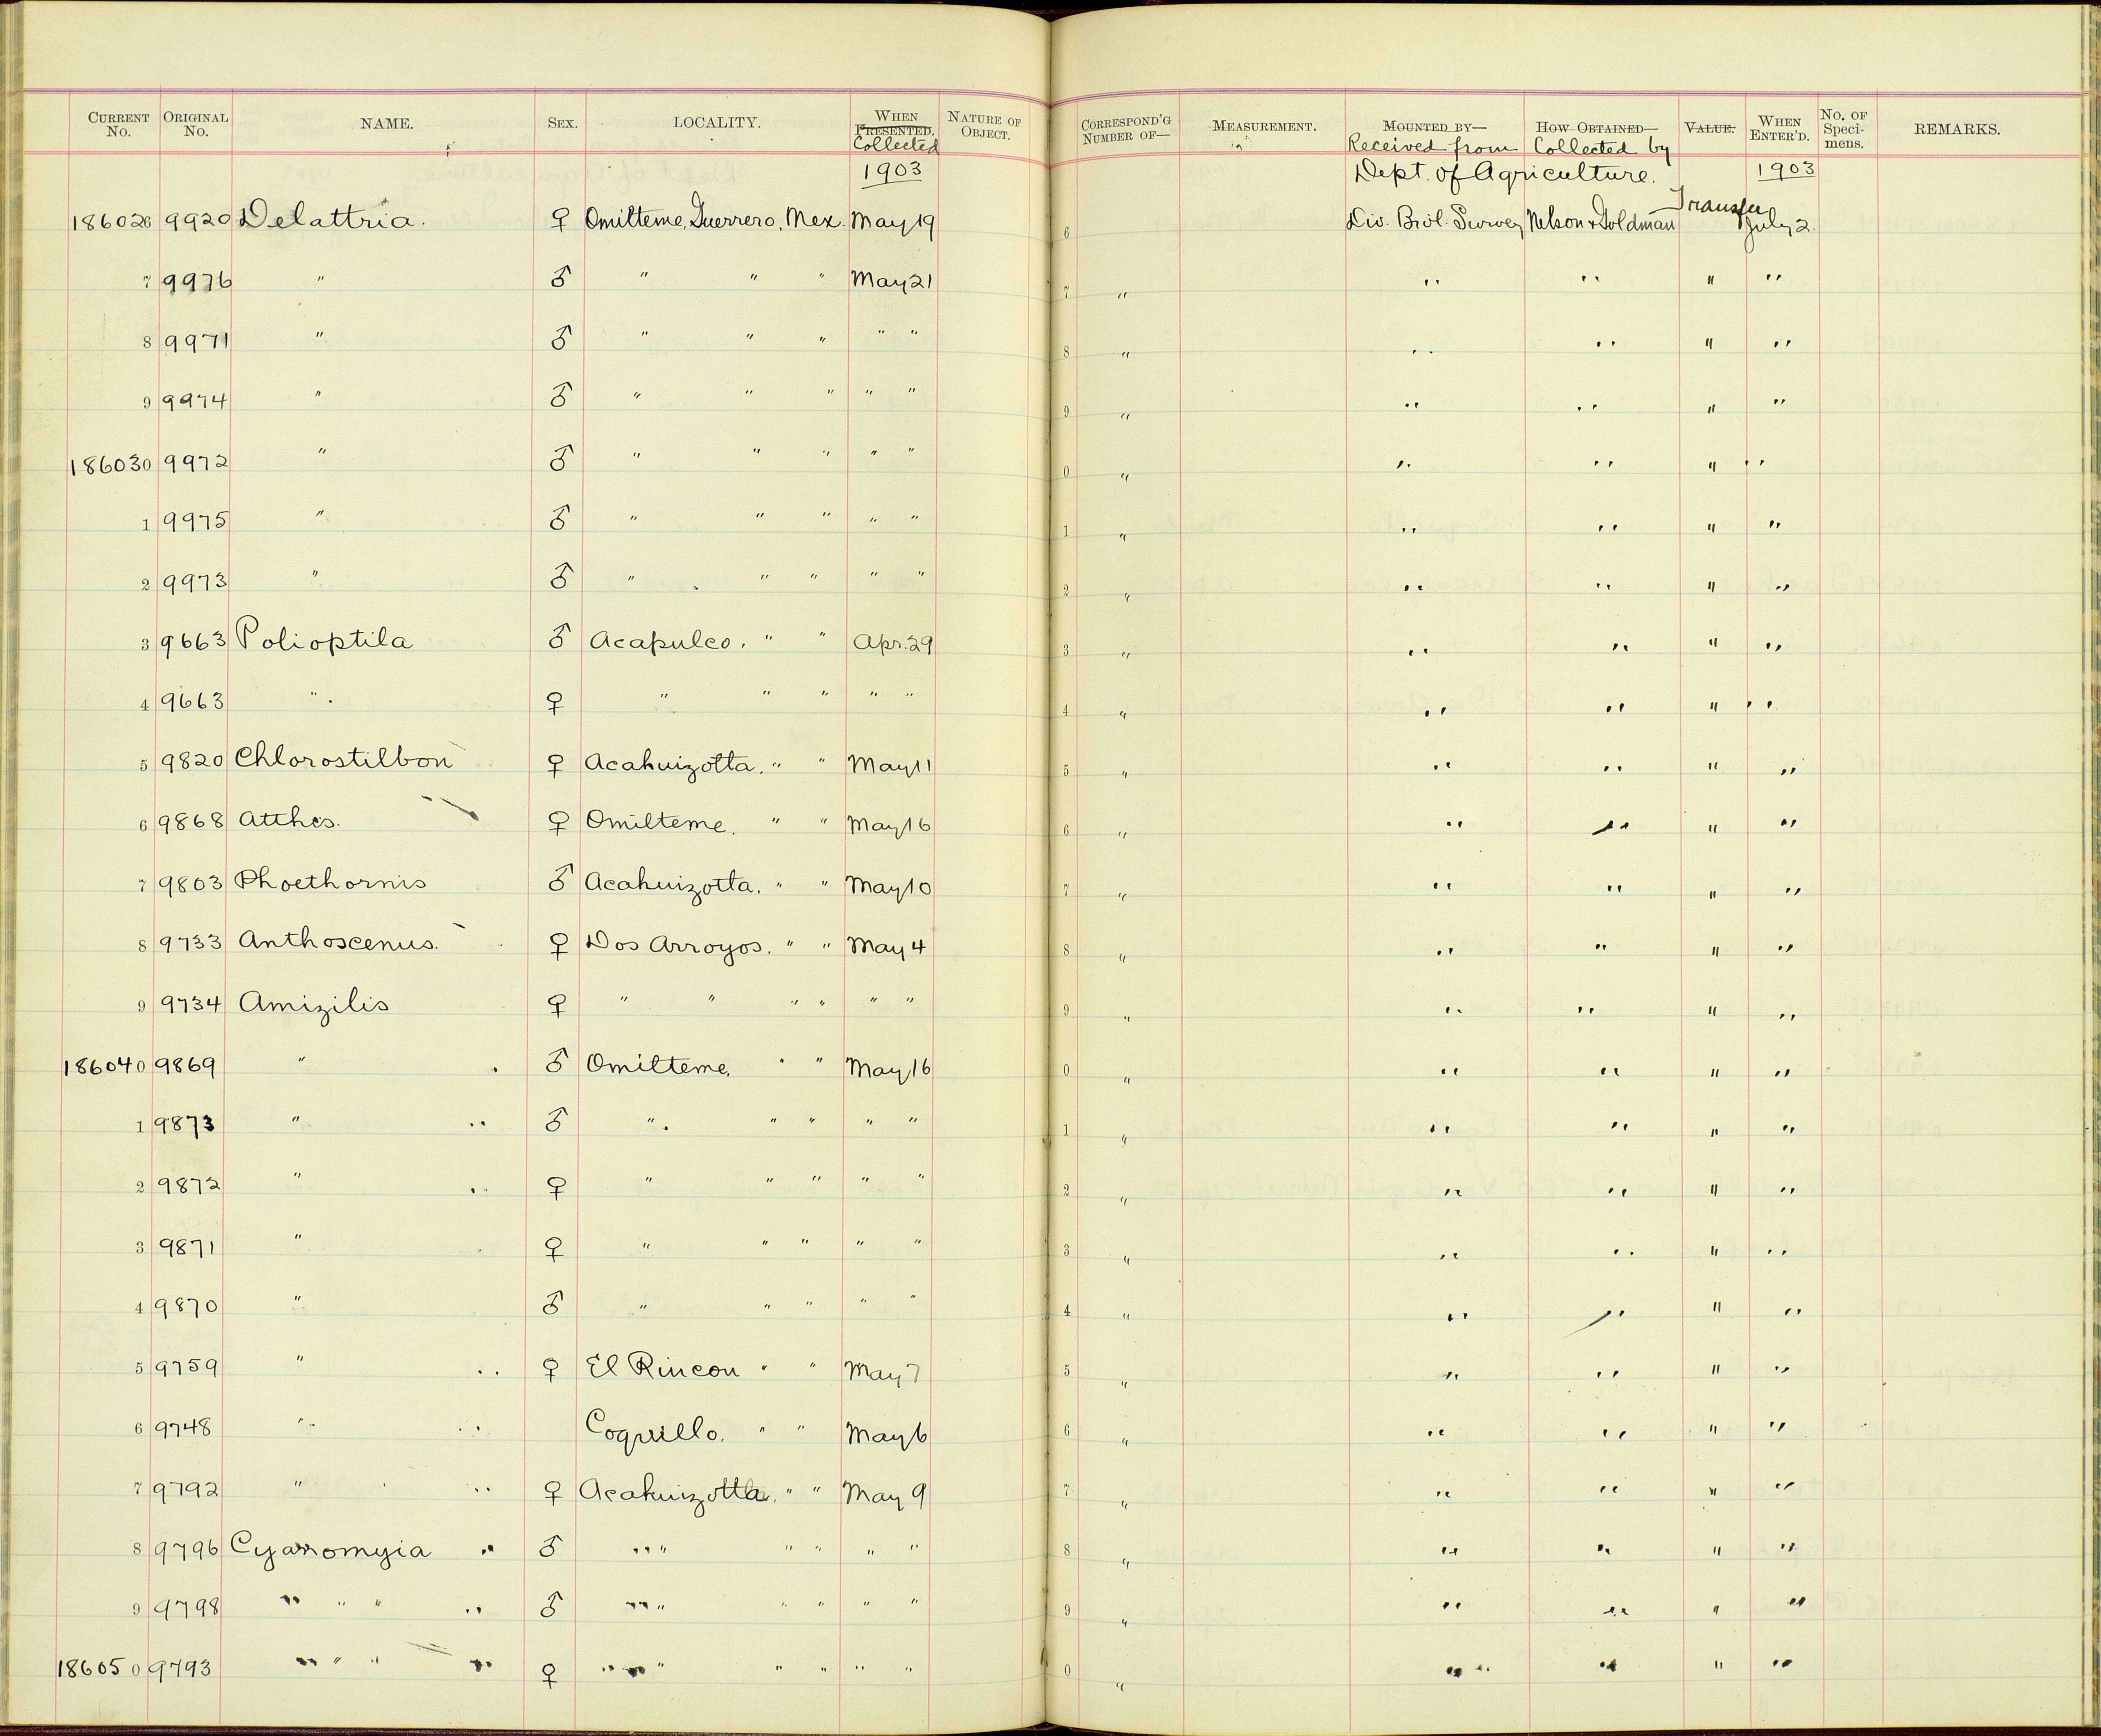 CURRENT No. ORIGINAL No. NAME. SEX. LOCALITY. WHEN PRESENTED. Collected NATURE OF OBJECT. CORRESPOND'G NUMBER OF— MEASUREMENT. MOUNTED BY— Received from HOW OBTAINED— Collected by VALUE. WHEN ENTER'D. No. OF Specimens. REMARKS.
1903 Dept. of Agriculture. 1903
186026 9920 Delattria. ♀ Omilteme, Guerrero, Mex. May 19 6 Div. Biol. Survey Nelson & Goldman Transfer July 2.
7 9976 " ♂ " " " May 21 7 " " " " "
8 9971 " ♂ " " " " " 8 " " " " "
9 9974 " ♂ " " " " " 9 " " " " "
186030 9972 " ♂ " " " " " 0 " " " " "
1 9975 " ♂ " " " " " 1 " " " " "
2 9973 " ♂ " " " " " 2 " " " " "
3 9663 Polioptila ♂ Acapulco. " " Apr. 29 3 " " " " "
4 9663 " ♀ " " " " " 4 " " " " "
5 9820 Chlorostilbon ♀ Acahuizotta. " " May 11 5 " " " " "
6 9868 Atthis. ♀ Omilteme. " " May 16 6 " " " " "
7 9803 Phoethornis ♂ Acahuizotta. " " May 10 7 " " " " "
8 9733 Anthoscenus. ♀ Dos Arroyos. " " May 4 8 " " " " "
9 9734 Amizilis ♀ " " " " " " 9 " " " " "
186040 9869 " ♂ Omilteme. " " May 16 0 " " " " "
1 9873 " ♂ " " " " " 1 " " " " "
2 9872 " ♀ " " " " " 2 " " " " "
3 9871 " ♀ " " " " " 3 " " " " "
4 9870 " ♂ " " " " " 4 " " " " "
5 9759 " ♀ El Rincon " " May 7 5 " " " " "
6 9748 " Coquillo. " " May 6 6 " " " " "
7 9792 " ♀ Acahuizotta. " " May 9 7 " " " " "
8 9796 Cyanomyia ♂ " " " " " 8 " " " " "
9 9798 " " " ♂ " " " " " 9 " " " " "
186050 9793 " " " ♀ " " " " " 0 " " " " "